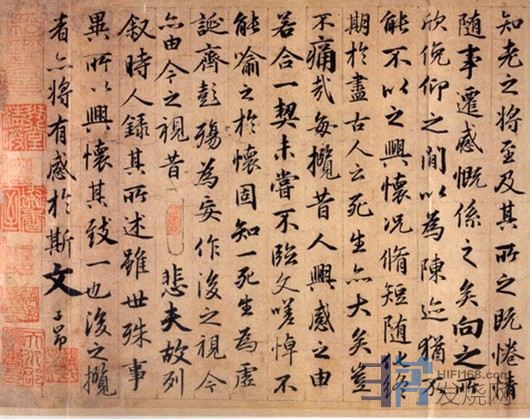 知老之將至及其所之既惓情
随事遷感慨係之矣向之所
欣俛仰之間以為陳迹猶不
能不以之興懷况脩短随化終
期於盡古人云死生亦大矣豈
不痛哉每攬昔人興感之由
若合一契未嘗不臨文嗟悼不
能喻之於懷固知一死生為虚
誕齊彭殤為妄作後之視今
亦由今之視昔 悲夫故列
叙時人録其所述雖世殊事
異所以興懷其致一也後之攬
者亦將有感於斯文 子昂
HIFI168.com
发烧网